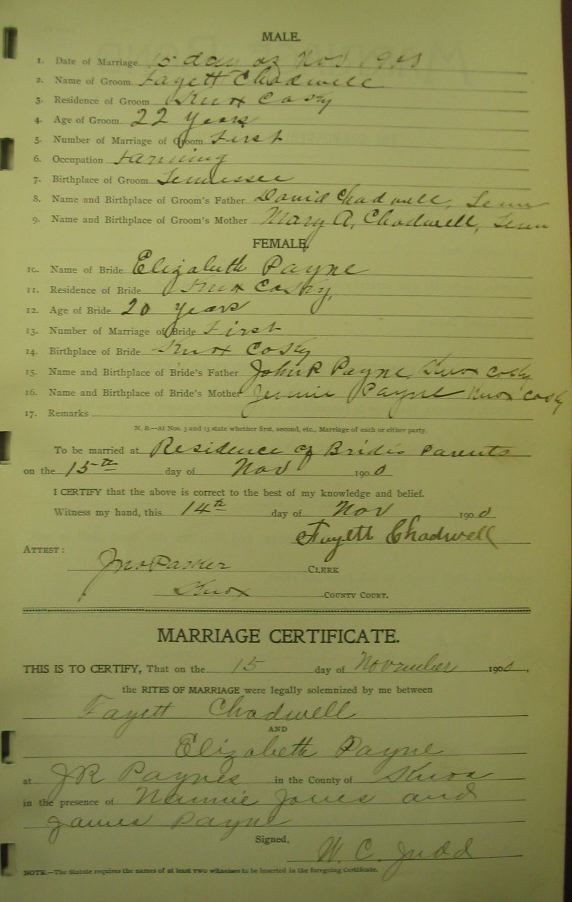 MALE.
1. Date of Marriage 15 day of Nov 1900
2. Name of Groom Fayett Chadwell
3. Residence of Groom Knox Co Ky
4. Age of Groom 22 years
5. Number of Marriage of Groom First
6. Occupation Farming
7. Birthplace of Groom Tennessee
8. Name and Birthplace of Groom's Father David Chadwell, Tenn
9. Name and Birthplace of Groom's Mother Mary A, Chadwell, Tenn
FEMALE.
10. Name of Bride Elizabeth Payne
11. Residence of Bride Knox Co Ky,
12. Age of Bride 20 years
13. Number of Marriage of Bride First
14. Birthplace of Bride Knox Co Ky
15. Name and Birthplace of Bride's Father John R Payne Knox Co Ky
16. Name and Birthplace of Bride's Mother Jennie Payne Knox Co Ky
17. Remarks
N. B.—At Nos. 5 and 13 state whether first, second, etc., Marriage of each or either party.
To be married at Residence of Bride's Parents
on the 15th day of Nov 1900
I CERTIFY that the above is correct to the best of my knowledge and belief.
Witness my hand, this 14th day of Nov 1900
Fayett Chadwell
ATTEST:
Jno Parker CLERK
Knox COUNTY COURT.
MARRIAGE CERTIFICATE.
THIS IS TO CERTIFY, That on the 15 day of November 1900,
the RITES OF MARRIAGE were legally solemnized by me between
Fayett Chadwell
AND
Elizabeth Payne
at J R Paynes in the County of Knox
in the presence of Nannie Jones and
James Payne
Signed,
W. C. Judd
NOTE.—The Statute requires the names of at least two witnesses to be inserted in the foregoing Certificate.